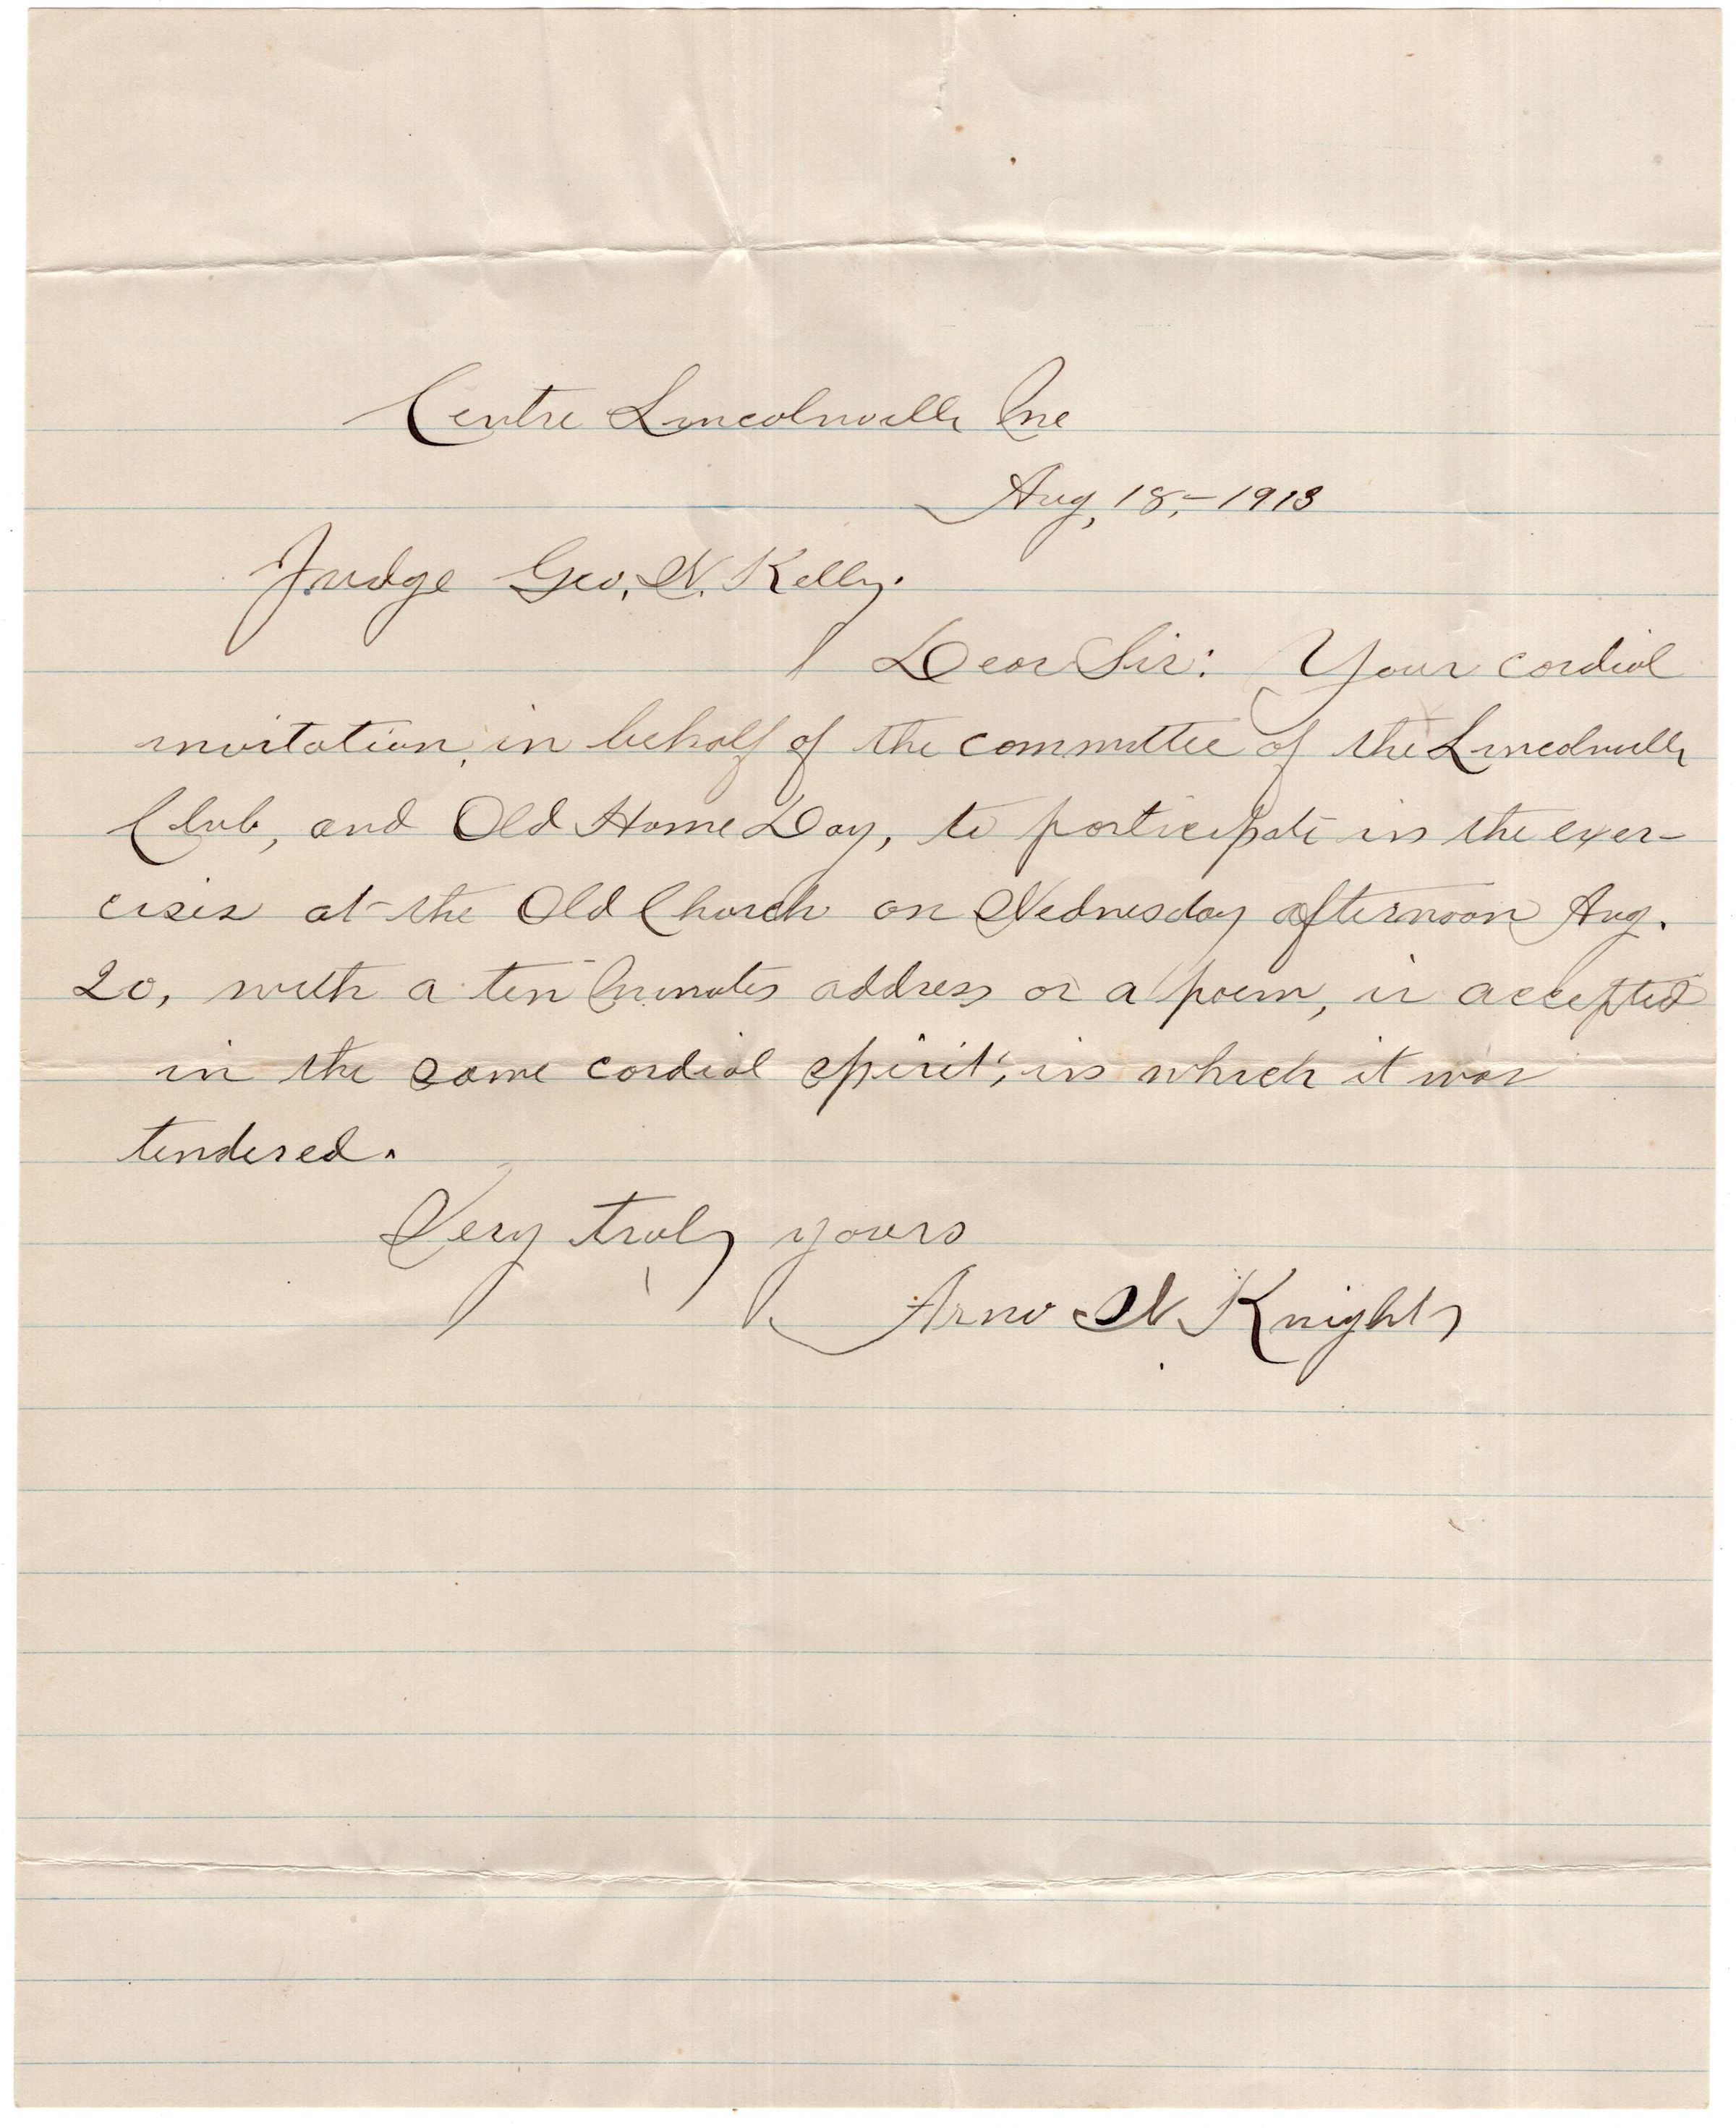 Centre Lincolnville Me
Aug, 18,- 1913
Judge Geo, W. Kelly.
Dear Sir: Your cordial
invitation, in behalf of the committee of the Lincolnville
Club, and Old Home Day, to participate in the exer-
cises at the Old Church on Wednesday afternoon Aug.
20, with a ten minutes address or a poem, is accepted
in the same cordial spirit, in which it was
tendered.
Very truly yours
Arno W Knight